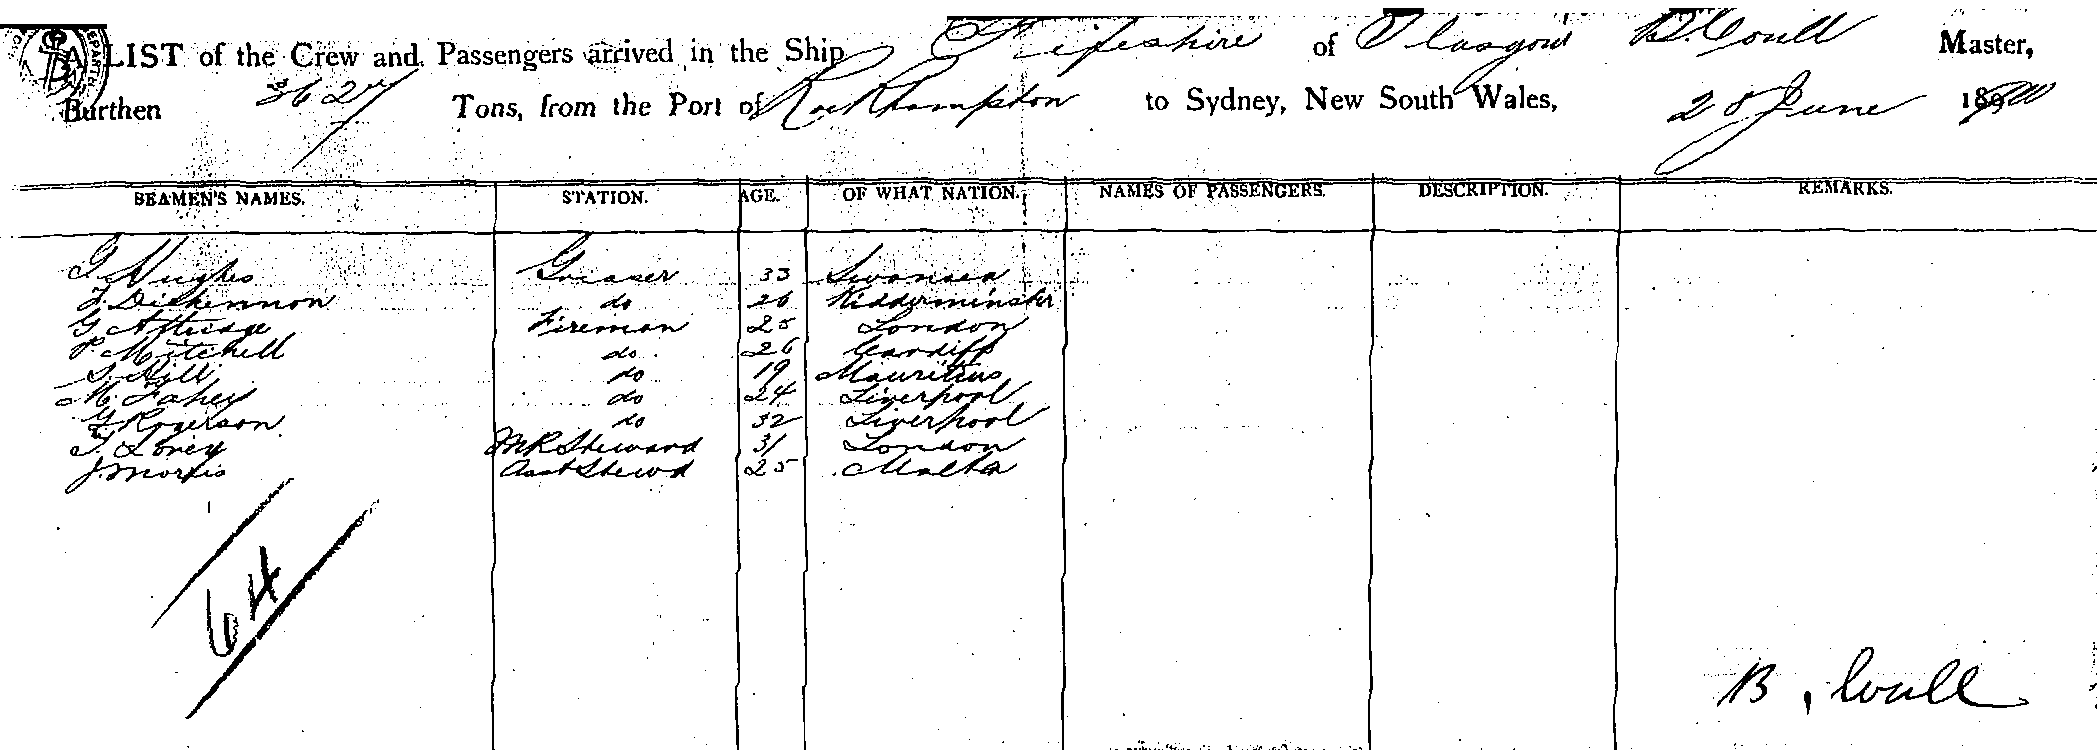 A LIST of the Crew and Passengers arrived in the Ship Fifeshire of Glasgow B. Coull Master,
Burthen 3627 Tons, from the Port of Rockhampton to Sydney, New South Wales, 28 June 1900
BEAMEN'S NAMES. STATION. AGE. OF WHAT NATION. NAMES OF PASSENGERS. DESCRIPTION. REMARKS.
J. Hughes Greaser 33 Swansea
J. Dickennon do 26 Kidderminster
G. Attridge Fireman 25 London
P. Mitchell do 26 Cardiff
S. Hill do 19 Mauritius
M. Fahey do 24 Liverpool
G. Rogerson do 32 Liverpool
T. Lovey MR Steward 31 London
J. Morris Asst Stewd 25 Malta
64
B. Coull